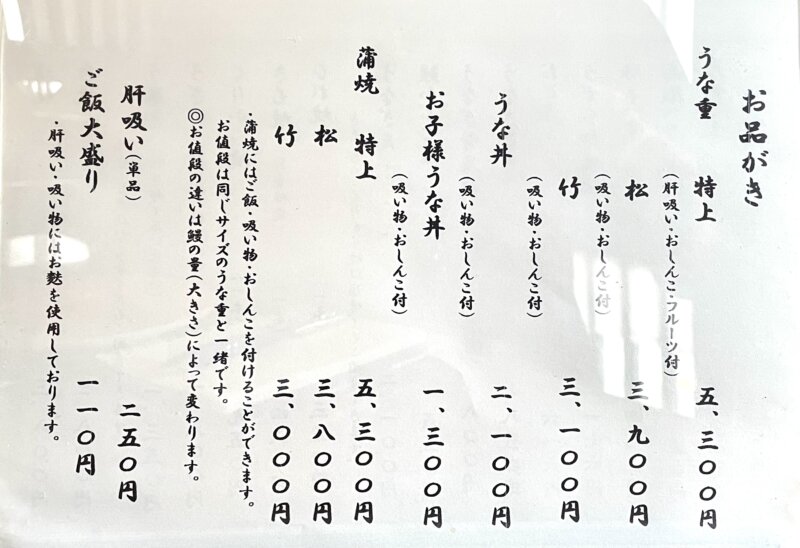 お品がき
うな重 特上 五、三〇〇円
(肝吸い・おしんこ・フルーツ付)
松 三、九〇〇円
(吸い物・おしんこ付)
竹 三、一〇〇円
(吸い物・おしんこ付)
うな丼 二、一〇〇円
(吸い物・おしんこ付)
お子様うな丼 一、三〇〇円
(吸い物・おしんこ付)
蒲焼 特上 五、三〇〇円
松 三、八〇〇円
竹 三、〇〇〇円
・蒲焼にはご飯・吸い物・おしんこを付けることができます。
お値段は同じサイズのうな重と一緒です。
◎お値段の違いは鰻の量(大きさ)によって変わります。
肝吸い(単品) 二五〇円
ご飯大盛り 一一〇円
・肝吸い・吸い物にはお麩を使用しております。